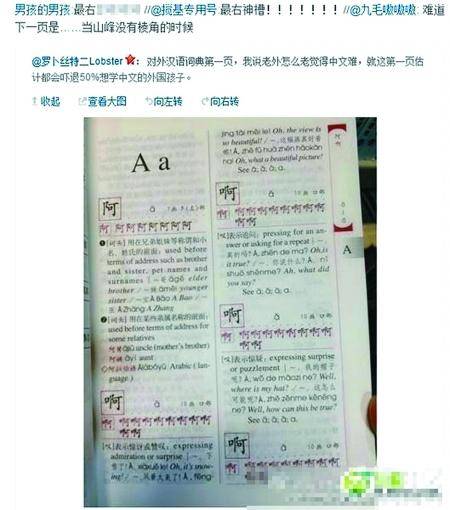 男孩的男孩.最右 //@掘基专用号:最右神槽！！！！！！！//@九毛嗷嗷嗷: 难道
下一页是……当山峰没有棱角的时候
@罗卜丝特二Lobster：对外汉语词典第一页，我说老外怎么老觉得中文难，就这第一页估
计都会吓退50%想学中文的外国孩子。
收起 查看大图 向左转 向右转
A a
阿 ā
❶[词头]用在兄弟姐妹等称谓和小
名、姓氏的前面: used before
terms of address such brother
and sister, pet names and
surnames
brother ／～妹 āmèi younger
sister ／～宝 ĀBǎo A Bao ／～
张 ĀZhāng A Zhang
❷[词头]用在某些亲属名称的前面:
used before terms of address for
some relatives
阿舅 ājiù uncle (mother's brother)
阿姨 āyí aunt
◇阿拉伯语 Ālābóyǔ Arabic (lan-
guage)
啊 ā
[叹]表示惊讶或赞叹: expressing
admiration or surprise
雪了! Ā, xiàxuě le! Oh, it's snow-
ing!
jǐng tài měi le! Oh, the view is
so beautiful!
啦! Ā, zhè fú huà zhēn hǎokàn
na! Oh, what a beautiful picture!
See á; ǎ; à; a.
啊 á
[叹]表示追问: pressing for an an-
swer or asking for a repeat
真的吗? Á, zhēn de ma? Oh, is
it true? ／～，你说什么? Á, nǐ
shuō shénme? Ah, what did
you say?
See ā; ǎ; à; a.
啊 ǎ
[叹]表示惊疑: expressing surprise
or puzzlement ～，我的帽子
呢? Ǎ, wǒ de màozi ne? Well,
where is my hat? ／～，这怎么
可能呢? Ǎ, zhè zěnme kěnéng
ne? Well, how can this be true?
See ā; á; à; a.
啊 à
A